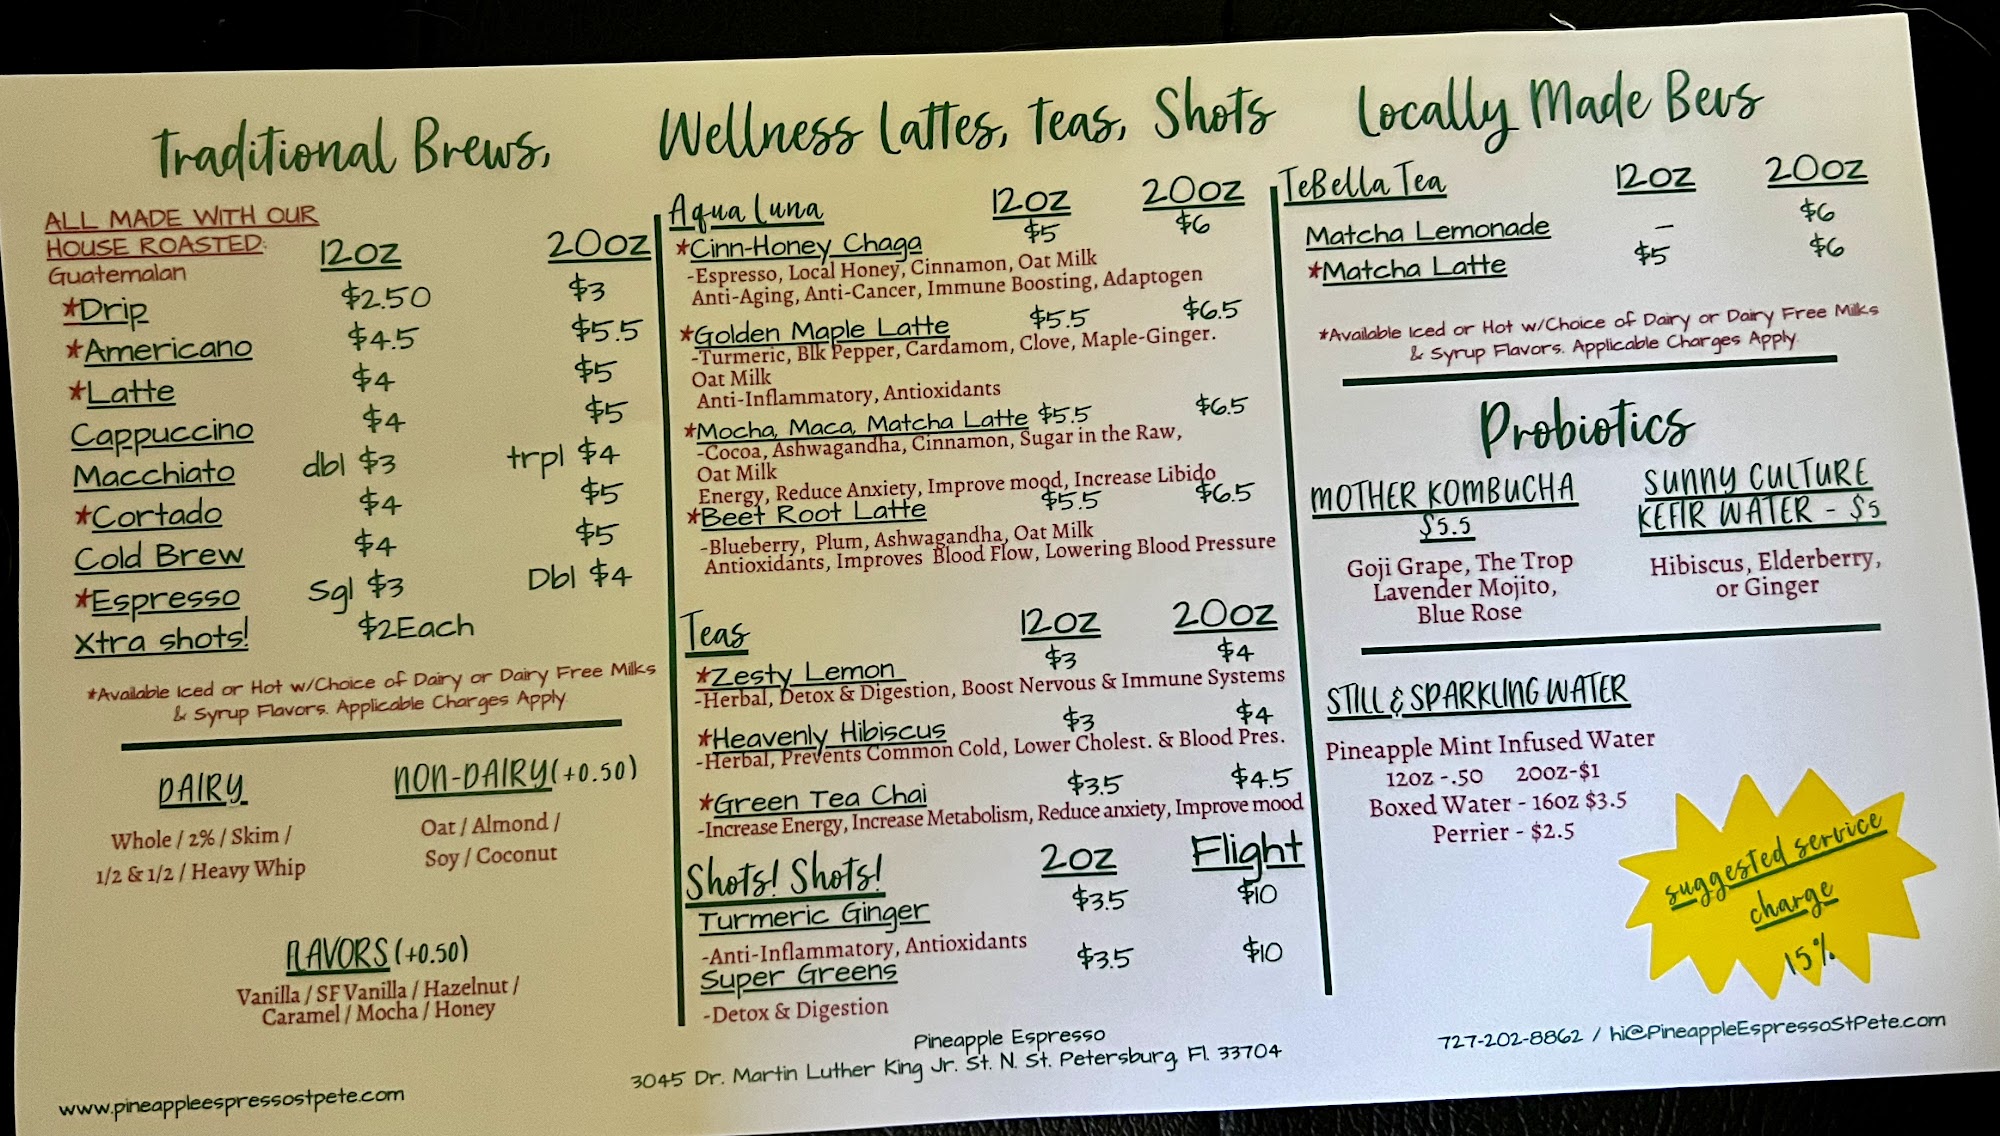 Traditional Brews,
ALL MADE WITH OUR
HOUSE ROASTED:
Guatemalan
12oz 20oz
*Drip $2.50 $3
*Americano $4.5 $5.5
*Latte $4 $5
Cappuccino $4 $5
Macchiato dbl $3 trpl $4
*Cortado $4 $5
Cold Brew $4 $5
*Espresso Sgl $3 Dbl $4
Xtra shots! $2Each
*Available Iced or Hot w/Choice of Dairy or Dairy Free Milks
& Syrup Flavors. Applicable Charges Apply.
DAIRY
Whole / 2% / Skim /
1/2 & 1/2 / Heavy Whip
NON-DAIRY(+0.50)
Oat / Almond /
Soy / Coconut
FLAVORS (+0.50)
Vanilla / SF Vanilla / Hazelnut /
Caramel / Mocha / Honey
Wellness Lattes, Teas, Shots
Aqua Luna 12oz 20oz
*Cinn-Honey Chaga $5 $6
-Espresso, Local Honey, Cinnamon, Oat Milk
Anti-Aging, Anti-Cancer, Immune Boosting, Adaptogen
*Golden Maple Latte $5.5 $6.5
-Turmeric, Blk Pepper, Cardamom, Clove, Maple-Ginger.
Oat Milk
Anti-Inflammatory, Antioxidants
*Mocha, Maca, Matcha Latte $5.5 $6.5
-Cocoa, Ashwagandha, Cinnamon, Sugar in the Raw,
Oat Milk
Energy, Reduce Anxiety, Improve mood, Increase Libido
*Beet Root Latte $5.5 $6.5
-Blueberry, Plum, Ashwagandha, Oat Milk
Antioxidants, Improves Blood Flow, Lowering Blood Pressure
Teas 12oz 20oz
*Zesty Lemon $3 $4
-Herbal, Detox & Digestion, Boost Nervous & Immune Systems
*Heavenly Hibiscus $3 $4
-Herbal, Prevents Common Cold, Lower Cholest. & Blood Pres.
*Green Tea Chai $3.5 $4.5
-Increase Energy, Increase Metabolism, Reduce anxiety, Improve mood
Shots! Shots! 2oz Flight
Turmeric Ginger $3.5 $10
-Anti-Inflammatory, Antioxidants
Super Greens $3.5 $10
-Detox & Digestion
Locally Made Bevs
TeBella Tea 12oz 20oz
Matcha Lemonade – $6
*Matcha Latte $5 $6
*Available Iced or Hot w/Choice of Dairy or Dairy Free Milks
& Syrup Flavors. Applicable Charges Apply.
Probiotics
MOTHER KOMBUCHA
$5.5
Goji Grape, The Trop
Lavender Mojito,
Blue Rose
SUNNY CULTURE
KEFIR WATER - $5
Hibiscus, Elderberry,
or Ginger
STILL & SPARKLING WATER
Pineapple Mint Infused Water
12oz -.50 20oz-$1
Boxed Water - 16oz $3.5
Perrier - $2.5
suggested service
charge
15%
www.pineappleespressostpete.com
Pineapple Espresso
3045 Dr. Martin Luther King Jr. St. N. St. Petersburg, Fl. 33704
727-202-8862 / hi@PineappleEspressoStPete.com